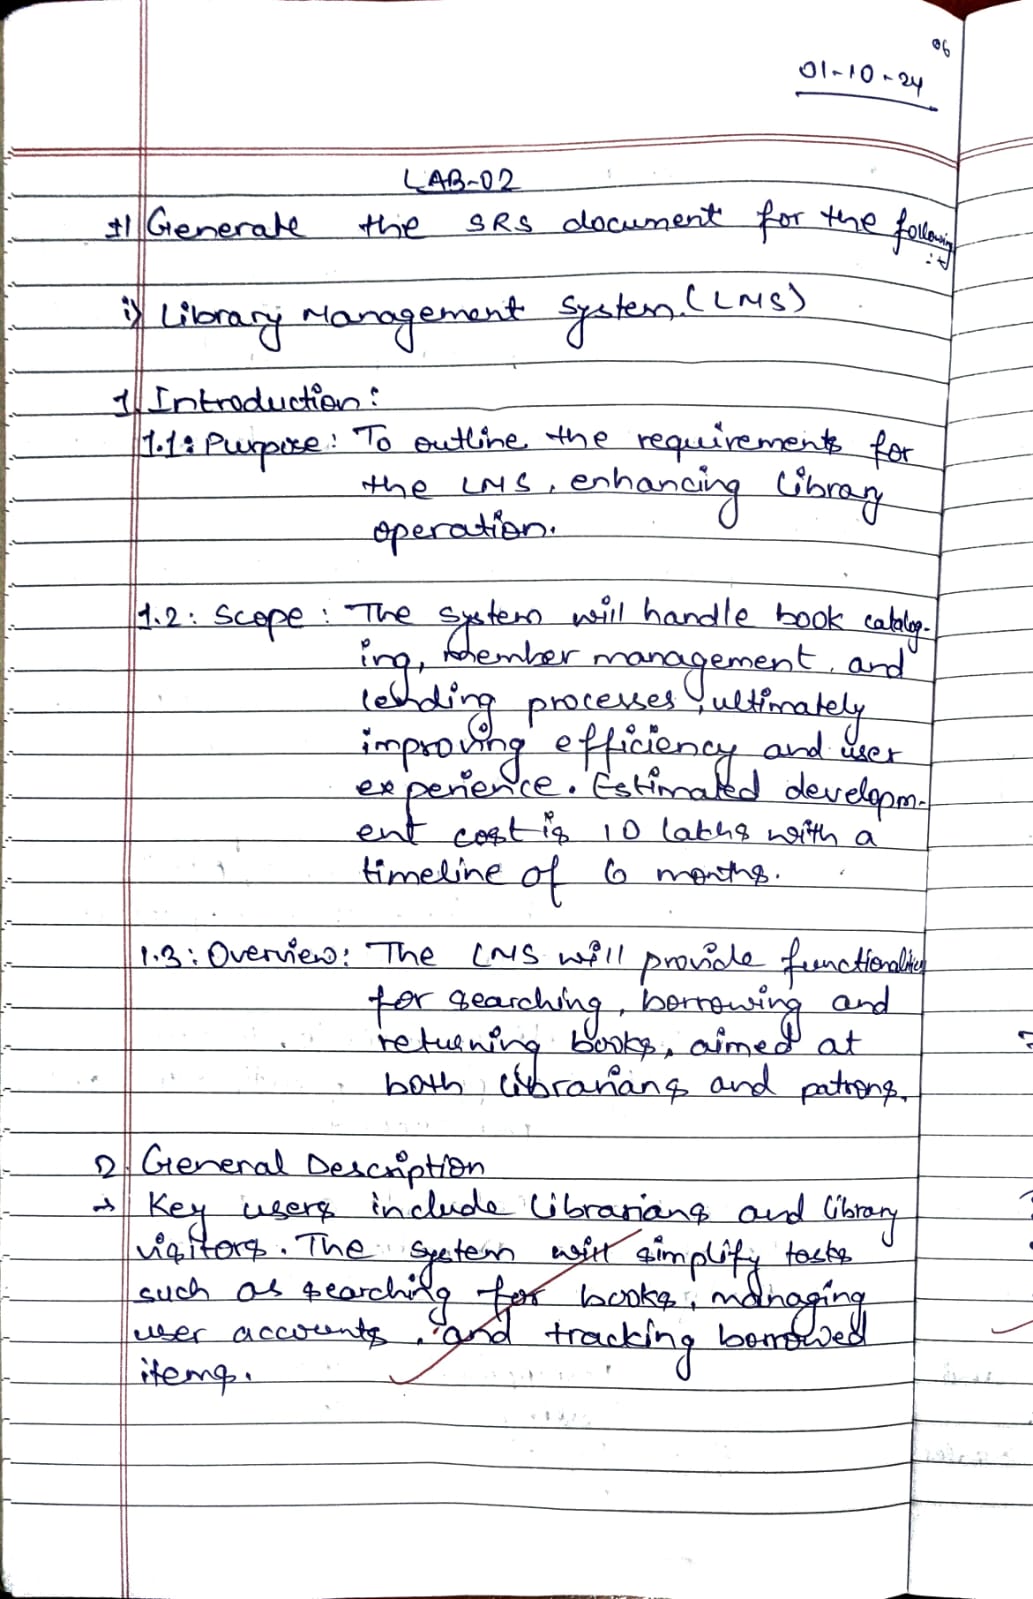 06
01-10-24
LAB-02
#1 Generate the SRS document for the following
:→
i) Library Management System. (LMS)
1. Introduction:
1.1: Purpose: To outline the requirements for
the LMS, enhancing library
operation.
1.2: Scope: The system will handle book catalog-
ing, member management, and
lending processes, ultimately
improving efficiency and user
experience. Estimated developm-
ent cost is 10 lakhs with a
timeline of 6 months.
1.3: Overview: The LMS will provide functionalities
for searching, borrowing and
returning books, aimed at
both librarians and patrons.
2. General Description
→ Key users include librarians and library
visitors. The system will simplify tasks
such as searching for books, managing
user accounts, and tracking borrowed
items.